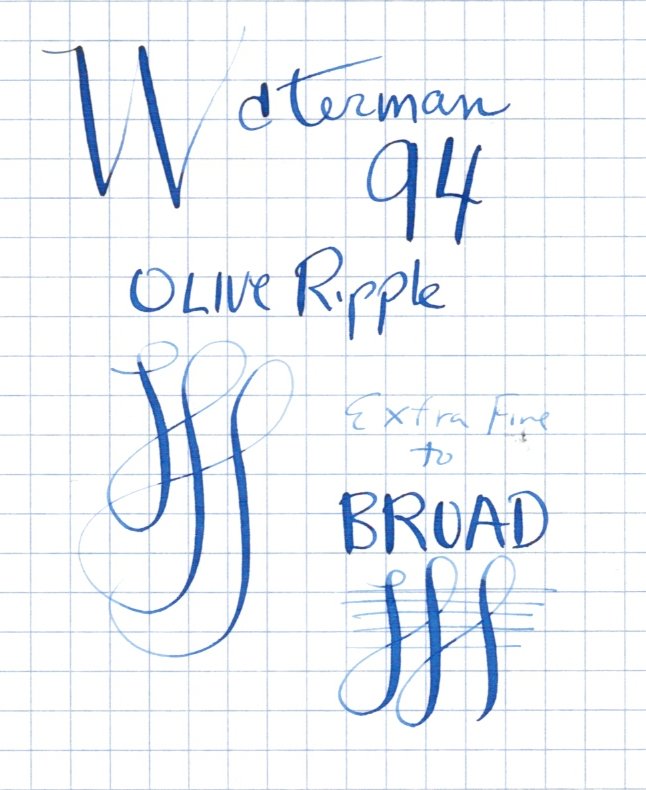 Waterman
94
OLIVE Ripple
Extra Fine
to
BROAD